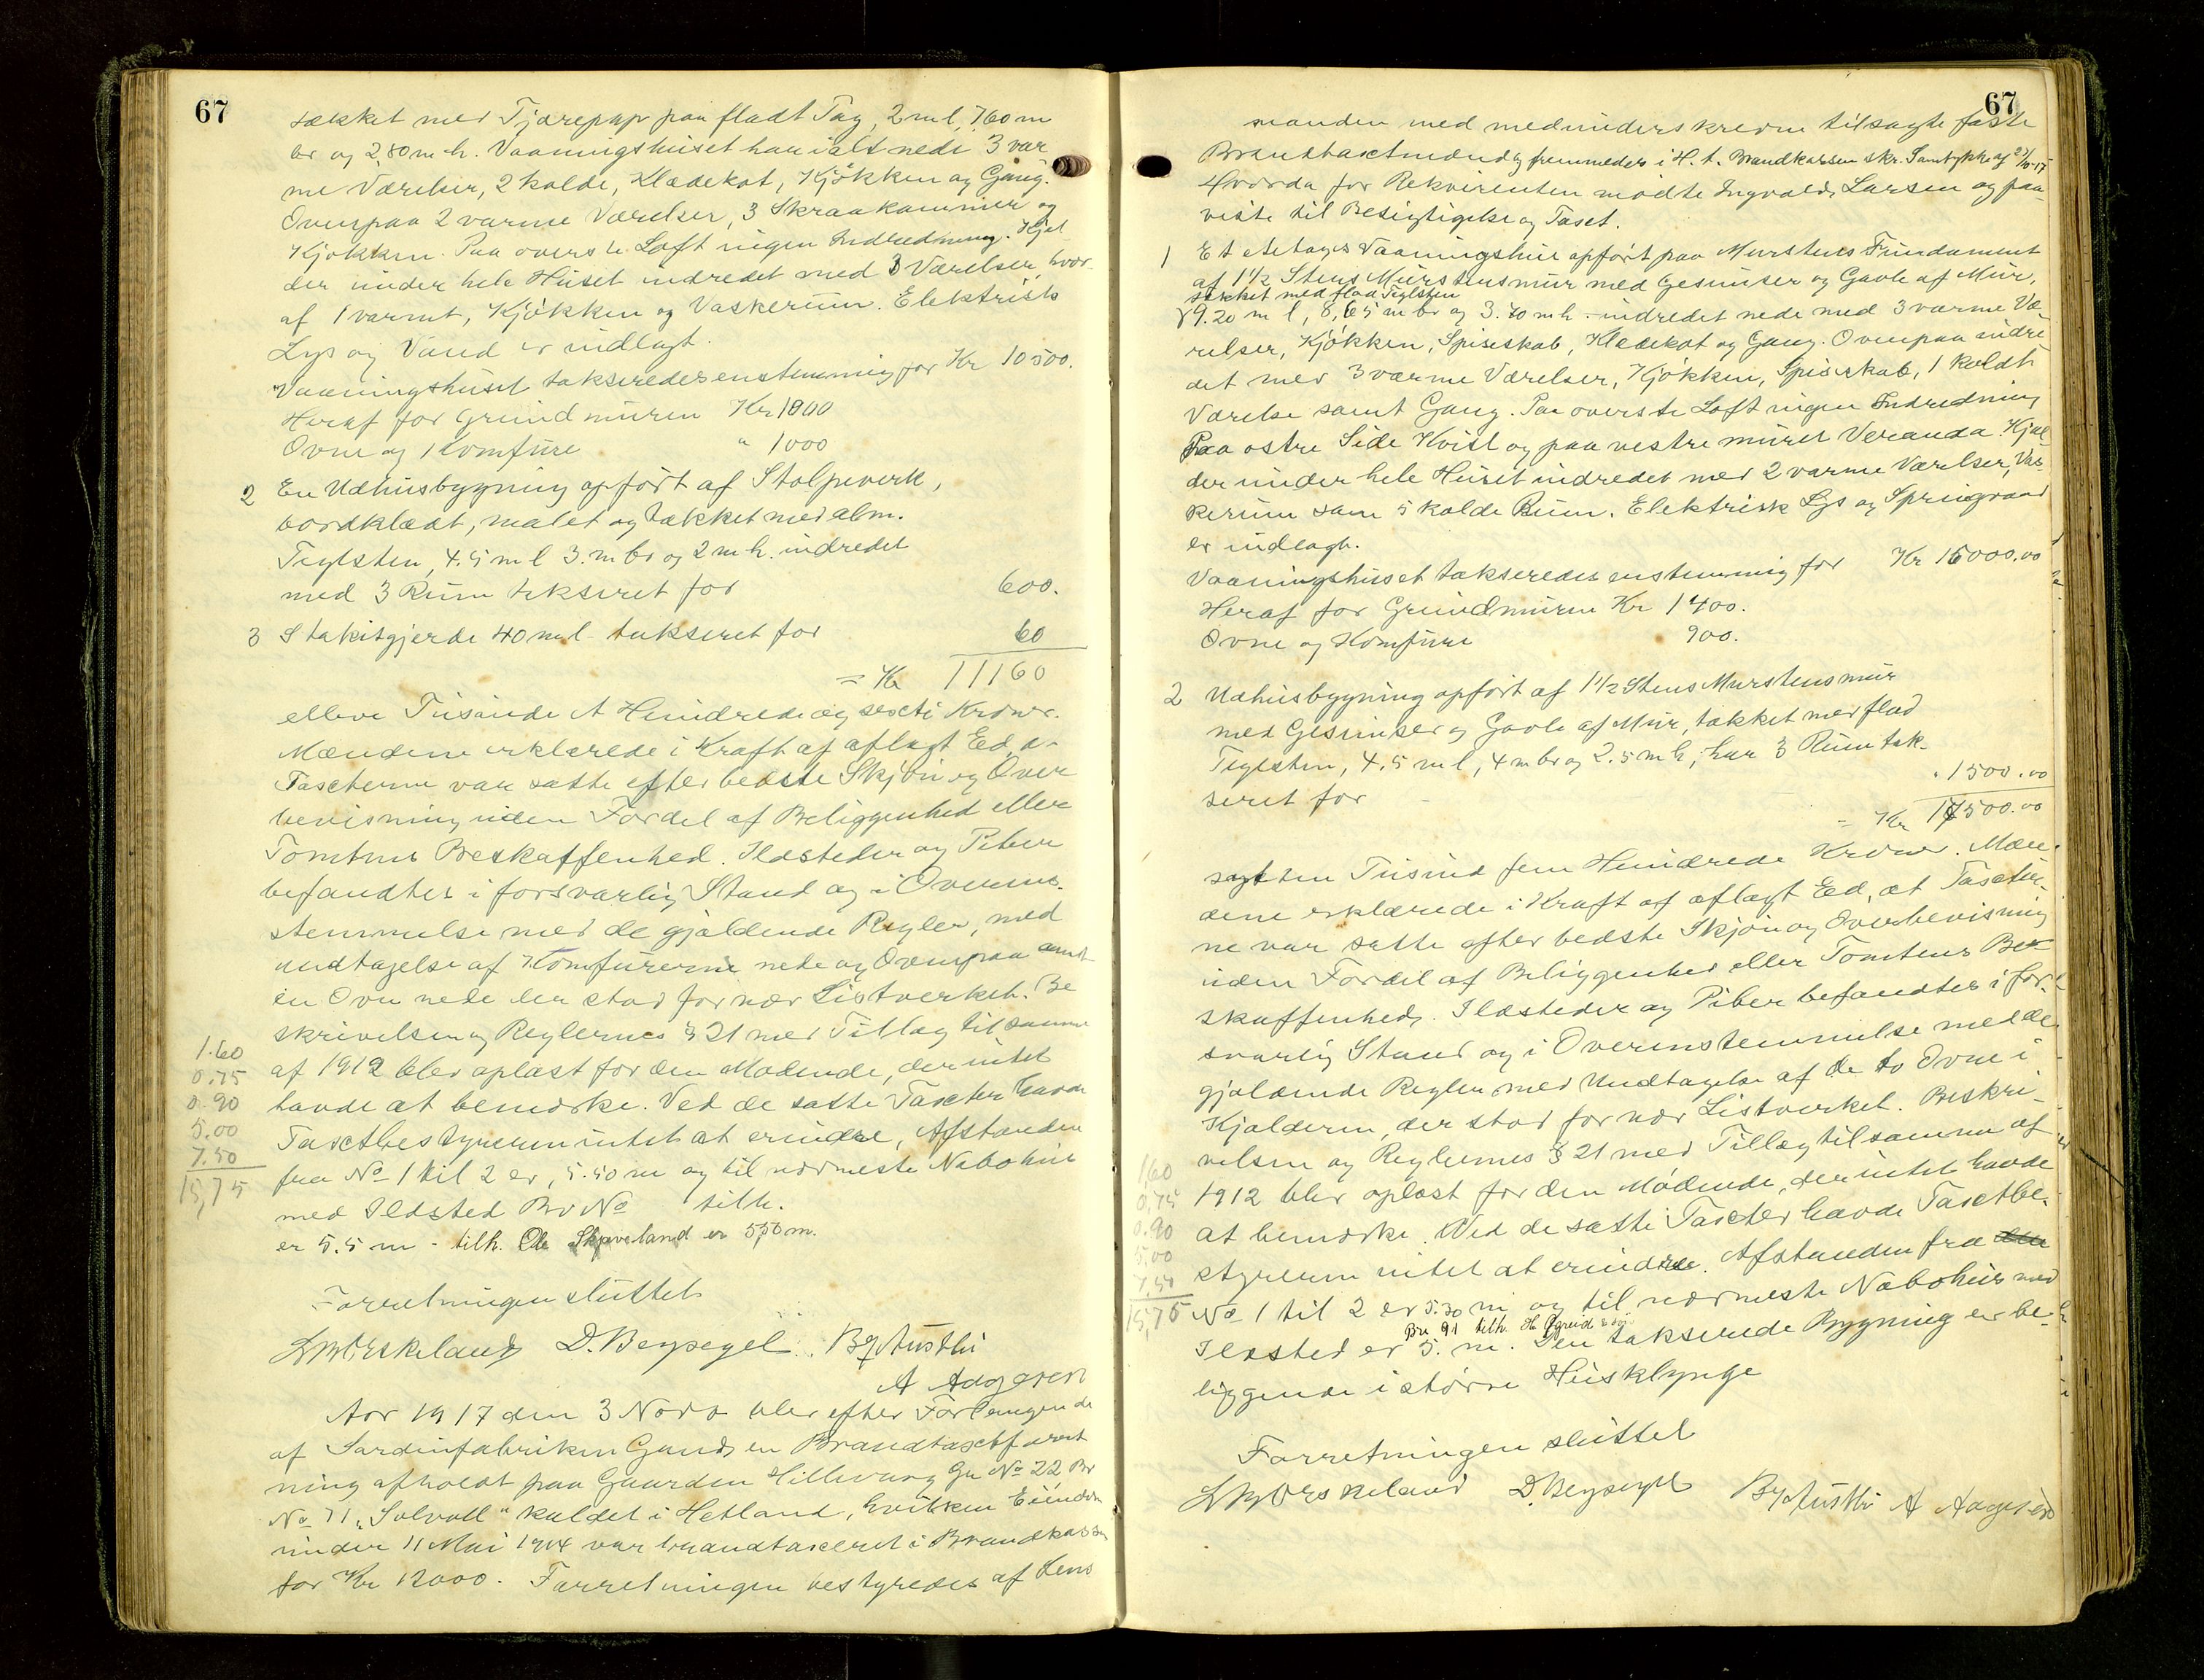 67
tækket med Tjærepap paa fladt Tag, 2 m l, 7.60 m
br og 2,80 m h. Vaaningshuset har ialt nede 3 var
me Værelser, 2 kolde, Klædekot, Kjøkken og Gang.
Ovenpaa 2 varme Værelser, 3 Skraakammer og
Kjøkken. Paa øverste Loft ingen Indredning. Kjæl
der under hele Huset indredet med 3 Værelser, hvor
af 1 varmt, Kjøkken og Vaskerum. Elektrisk
Lys og Vand er indlagt.
Vaaningshuset takseredes enstemmig for Kr 10500.
Heraf for Grundmuren Kr 1800
Ovne og 1 Komfure " 1000
2 En Udhusbygning opført af Stolpeverk,
bordklædt, malet og tækket med alm.
Teglsten, 4.5 m l 3. m br og 2 m h. indredet
med 3 Rum takseret for 600.
3 Stakitgjerde 40 m l - takseret for 60
= Kr 11160
elleve Tusinde et Hundrede og sexti Kroner.
Mændene erklærede i Kraft af aflagt Ed, at
Taxterne var satte efter bedste Skjøn og Over
bevisning uden Fordel af Beliggenhed eller
Tomtens Beskaffenhed. Ildsteder og Piber
befandtes i forsvarlig Stand og i Overens-
stemmelse med de gjældende Regler, med
undtagelse af Komfurerne nede og Ovenpaa samt
en Ovn nede der stod for nær Listverket. Be
skrivelsen og Reglernes § 21 med Tillæg til samme
af 1912 blev oplæst for den Mødende, der intet
havde at bemærke. Ved de satte Taxter havde
Taxtbestyreren intet at erindre, Afstanden
fra No 1 til 2 er, 5.50 m og til nærmeste Nabohus
med Ildsted Br No tilh.
er 5.5 m - tilh. Ole Skjæveland er 5,50 m.
1.60
0.75
0.90
5.00
7.50
15,75
Forretningen sluttet
D. Bergsegel.
A Aagesen
Aar 1917 den 3 Novb blev efter Forlangende
af Sardinfabriken Gand, en Brandtaxtforret
ning afholdt paa Gaarden Hillevaag Gr No 22 Br
No 71 "Solvoll" kaldet i Hetland, hvilken Eiendom
under 11 Mai 1914 var brandtaxeret i Brandkassen
for Kr 12000. Forretningen bestyredes af Lens
67
manden med medunderskrevne tilsagte faste
Brandtaxtmænd og fremmedes i H. t. Brandkassen skr. Samtykke af 23/10-17
Hvorda for Rekvirenten mødte Ingvald Larsen og paa
viste til Besigtigelse og Taxt.
1 Et etetages Vaaningshus opført paa Murstens Fundament
af 1 1/2 Stens Murstensmur med Gesimser og Gavle af Mur,
tækket med flad Teglsten
9.20 m l, 8,65 m br og 3.70 m h. indredet nede med 3 varme Væ
relser, Kjøkken, Spiseskab, Klædekot og Gang. Ovenpaa indre
det med 3 varme Værelser, Kjøkken, Spiseskab, 1 koldt
Værelse samt Gang. Paa øverste Loft ingen Indredning
Paa østre Side Kvist og paa vestre muret Veranda. Kjæl
der under hele Huset indredet med 2 varme Værelser, Vas
kerum samt 5 kolde Rum. Elektrisk Lys og Springvand
er indlagt.
Vaaningshuset takseredes enstemmig for Kr 16000.00
Heraf for Grundmuren Kr 1400.
Ovne og Komfure 900.
2 Udhusbygning opført af 1 1/2 Stens Murstensmur
med Gesimser og Gavle af Mur, tækket med flad
Teglsten, 4.5 m l, 4 m br og 2.5 m h, har 3 Rum tak-
seret for " 1500.00
= Kr 17500.00
sytten Tusind fem Hundrede Kroner. Mæn-
dene erklærede i Kraft af aflagt Ed, at Taxter-
ne var satte efter bedste Skjøn og Overbevisning
uden Fordel af Beliggenhed eller Tomtens Be-
skaffenhed. Ildsteder og Piber befandtes i for-
svarlig Stand og i Overensstemmelse med de
gjældende Regler, med Undtagelse af de to Ovne i
Kjælderen, der stod for nær Listverket. Beskri-
velsen og Reglernes § 21 med Tillæg til samme af
1912 blev oplæst for den Mødende, der intet havde
at bemærke. Ved de satte Taxter havde Taxtbe-
styreren intet at erindre. Afstanden fra
No 1 til 2 er 5.30 m og til nærmeste Nabohus med
Br 91 tilh.
Ildsted er 5. m. Den takserede Bygning er be-
liggende i større Husklynge
1,60
0,75
0.90
5,00
7,50
15,75
Forretningen sluttet
D. Bergsegel
A Aagesen